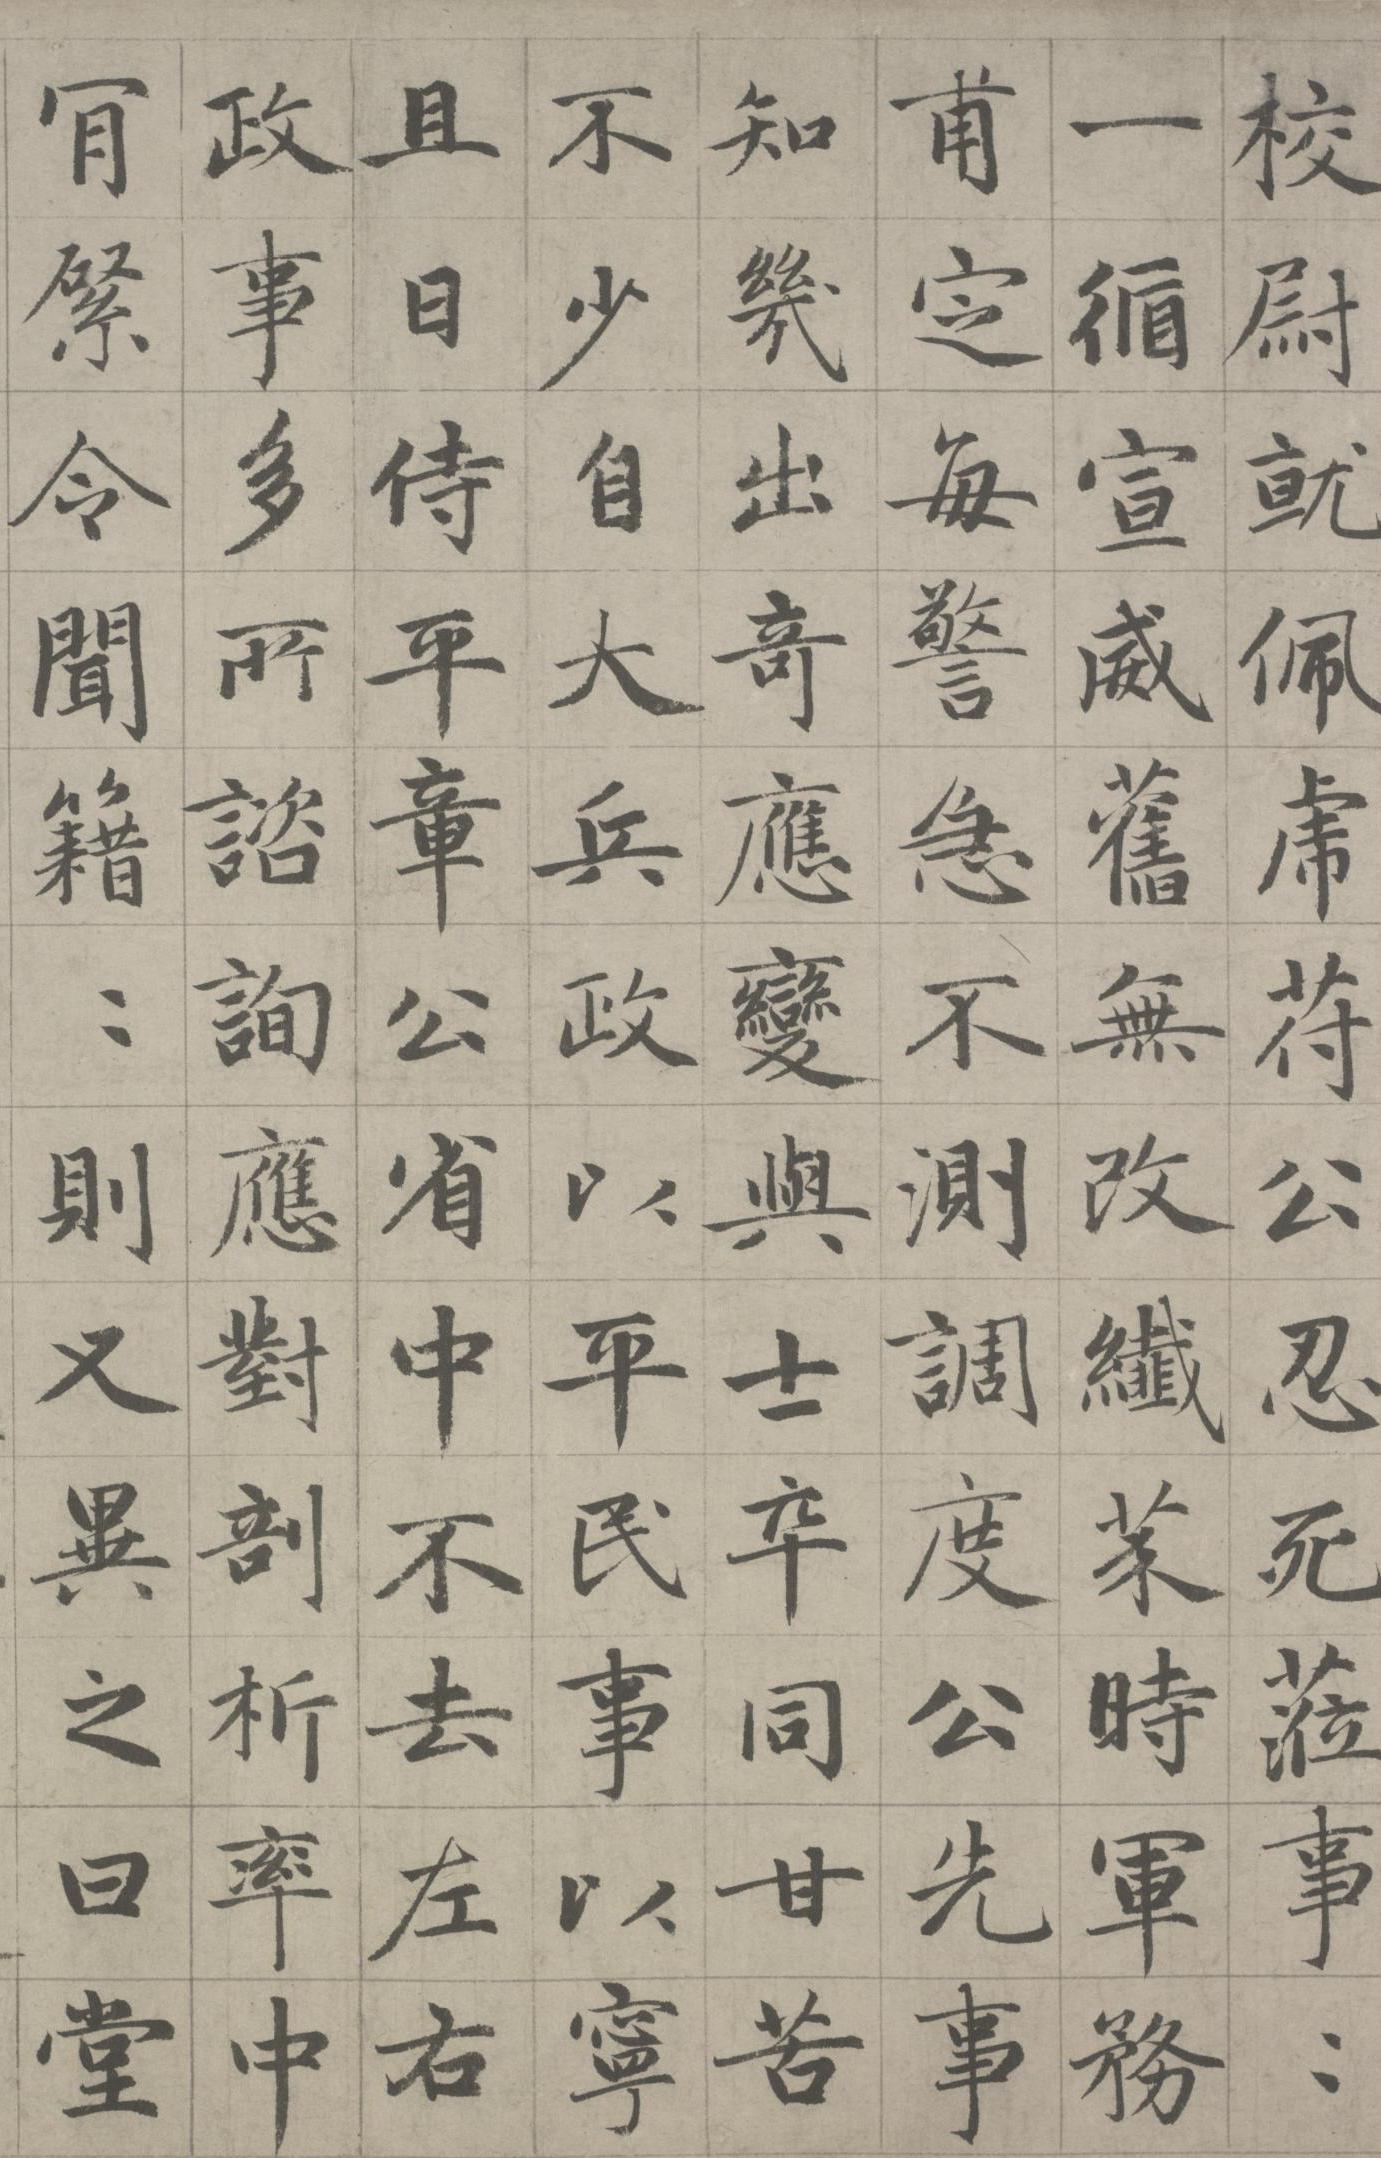 校尉就佩虎符公忍死蒞事〻
一循宣威舊無改纖芥時軍務
甫定每警急不測調度公先事
知幾出奇應變與士卒同甘苦
不少自大兵政以平民事以寧
且日侍平章公省中不去左右
政事多所諮詢應對剖析率中
肎綮令聞籍〻則又異之曰堂